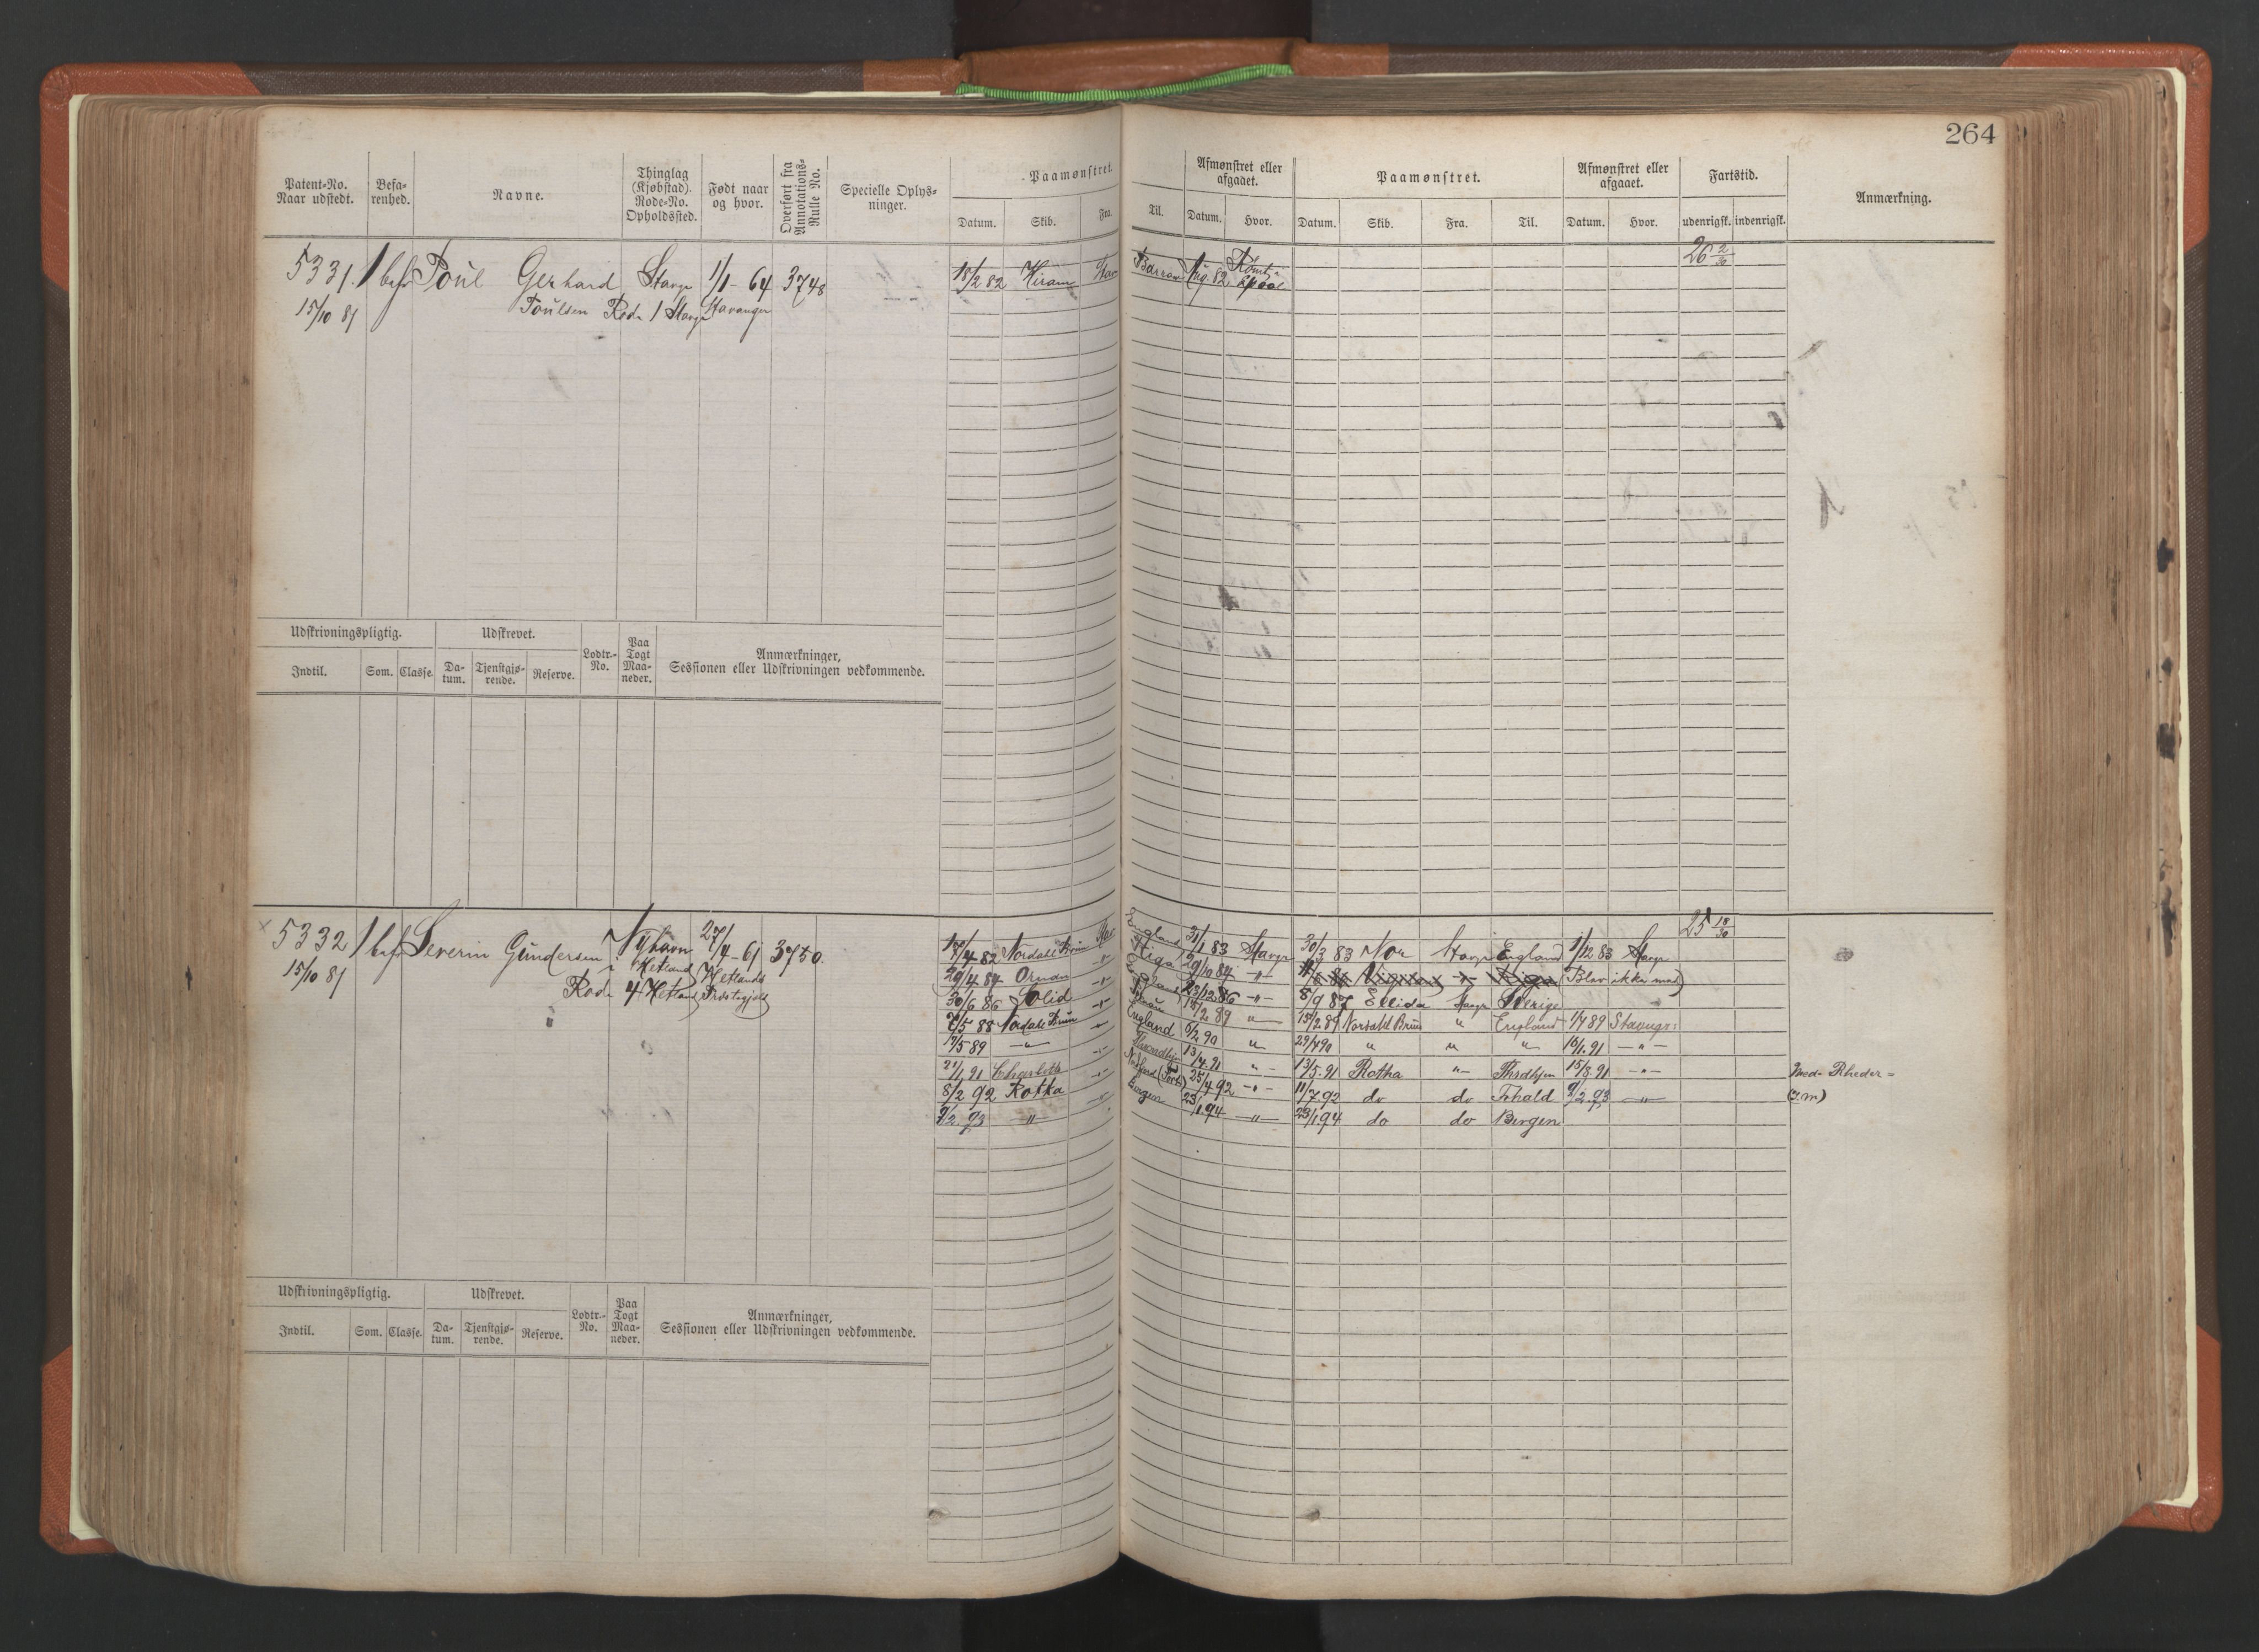 264
Patent-No. Naar udstedt. Befa-renhed. Navne. Thinglag (Kjøbstad). Rode-No. Opholdssted. Født naar og hvor. Overført fra Annotations-Rulle No. Specielle Oplys-ninger. Paamønstret. Afmønstret eller afgaaet. Paamønstret. Afmønstret eller afgaaet. Fartstid. Anmærkning.
Datum. Skib. Fra. Til. Datum. Hvor. Datum. Skib. Fra. Til. Datum. Hvor. udenrigsk. indenrigsk.
5331. 1 bef Poul Gerhard Stavgr 1/1-64 3748 18/2 82 Hiram Stav Barrow Aug. 82 26 2/30
15/10 81 Poulsen Rode 1 Stavgr Stavanger
Udskrivningspligtig. Udskrevet. Lodtr.-No. Paa Togt Maa-neder. Anmærkninger, Sessionen eller Udskrivningen vedkommende.
Indtil. Som. Classe. Da-tum. Tjenstgjø-rende. Reserve.
5332 1 bef Severin Gundersen Nyhavn 27/4-61 3750. 17/4 82 Nordahl Brun Stav England 31/1 83 Stavgr 30/3 83 Nor Stavgr England 1/12 83 Stavgr 25 18/30
15/10 81 Hetland Hetlands
Rode 4 Hetland Præstegjeld
29/4 84 Ornan -"- Riga 29/10 84 -"- (Blev ikke med)
30/6 86 Solid -"- England 23/12 86 -"- 8/9 87 Ellida Stavgr Sverige
7/5 88 Nordahl Brun 12/2 89 " 15/2 89 Nordahl Brun " England 1/4 89 Stavngr:
17/5 89 -"- England 6/2 90 " 29/4 90 " " " 16/1. 91 -"-
21/1 91 Charlotte -"- Throndhjm 13/4 91 "- 13/5. 91 Rotha "- Thrdhjem 15/8. 91 -"- Med. Rheder=
8/2 92 Rotha 25/4 92 -"- 11/7 92 do do Tohald 9/2. 93 -"- (2 m)
9/2. 93 -"- Bergen 23/1 94 -"- 23/1 94 do do Bergen
Udskrivningspligtig. Udskrevet. Lodtr.-No. Paa Togt Maa-neder. Anmærkninger, Sessionen eller Udskrivningen vedkommende.
Indtil. Som. Classe. Da-tum. Tjenstgjø-rende. Reserve.